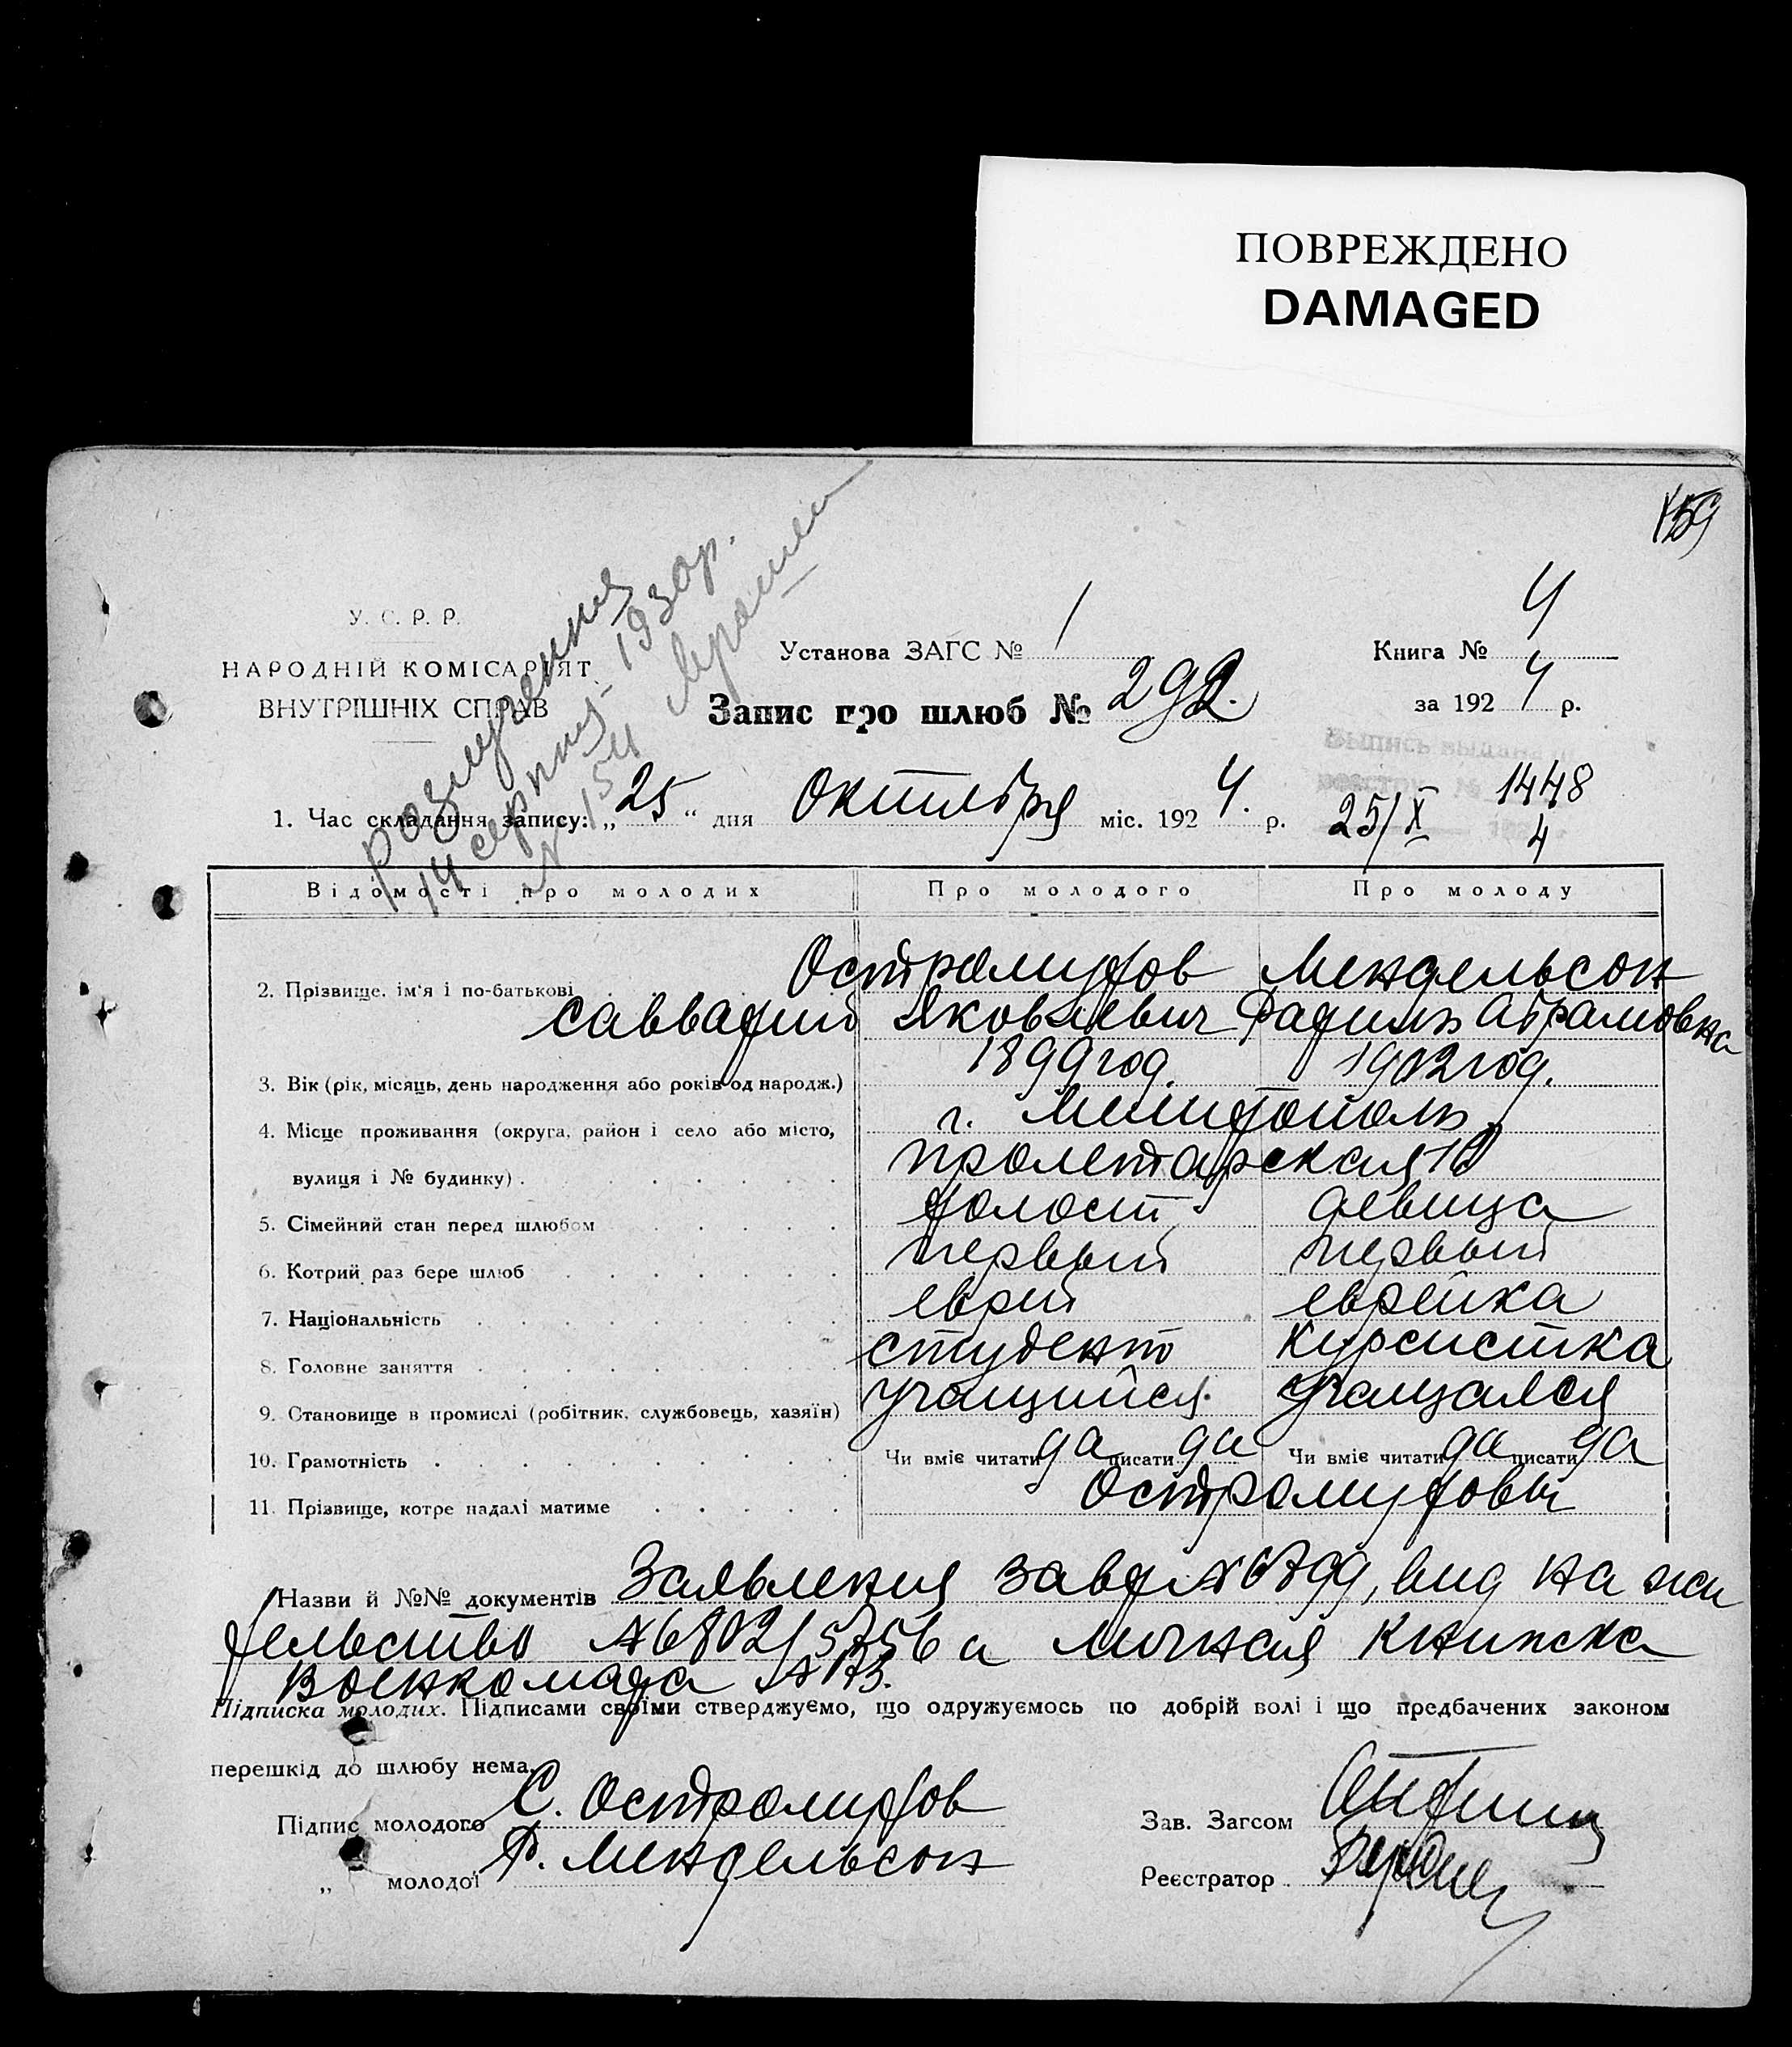 ПОВРЕЖДЕНО
DAMAGED
159
У. С. Р. Р.
НАРОДНІЙ КОМІСАРІЯТ
ВНУТРІШНІХ СПРАВ
Розлучення
14 серпня 1930р.
№ 154
Установа ЗАГС № 1
Книга № 4
за 1924 р.
Запис про шлюб № 292.
Выпись выдана
1. Час складання запису: „25“ дня Октября міс. 1924. р.
25/X 1448
4
Відомості про молодих Про молодого Про молоду
2. Прізвище, ім'я і по-батькові Остромухов Мендельсон
Савватий Яковлевич Рахиль Абрамовна
3. Вік (рік, місяць, день народження або років од народж.) 1899 год. 1902 год.
4. Місце проживання (округа, район і село або місто, г. Мелитополь
вулиця і № будинку) . Пролетарская 10
5. Сімейний стан перед шлюбом холост девица
6. Котрий раз бере шлюб первый первый
7. Національність еврей еврейка
8. Головне заняття студент курсистка
9. Становище в промислі (робітник, службовець, хазяїн) учащийся. учащаяся
10. Грамотність Чи вміє читати да писати да Чи вміє читати да писати да
11. Прізвище, котре надалі матиме Остромуховы
Назви й №№ документів Заявления № 6799, вид на жи
тельство № 6802/5756 и личная книжка
военкомата №
Підписка молодих. Підписами своїми стверджуємо, що одружуємось по добрій волі і що предбачених законом
перешкід до шлюбу нема.
Підпис молодого С. Остромухов
Зав. Загсом
„ молодої Р. Мендельсон
Реєстратор